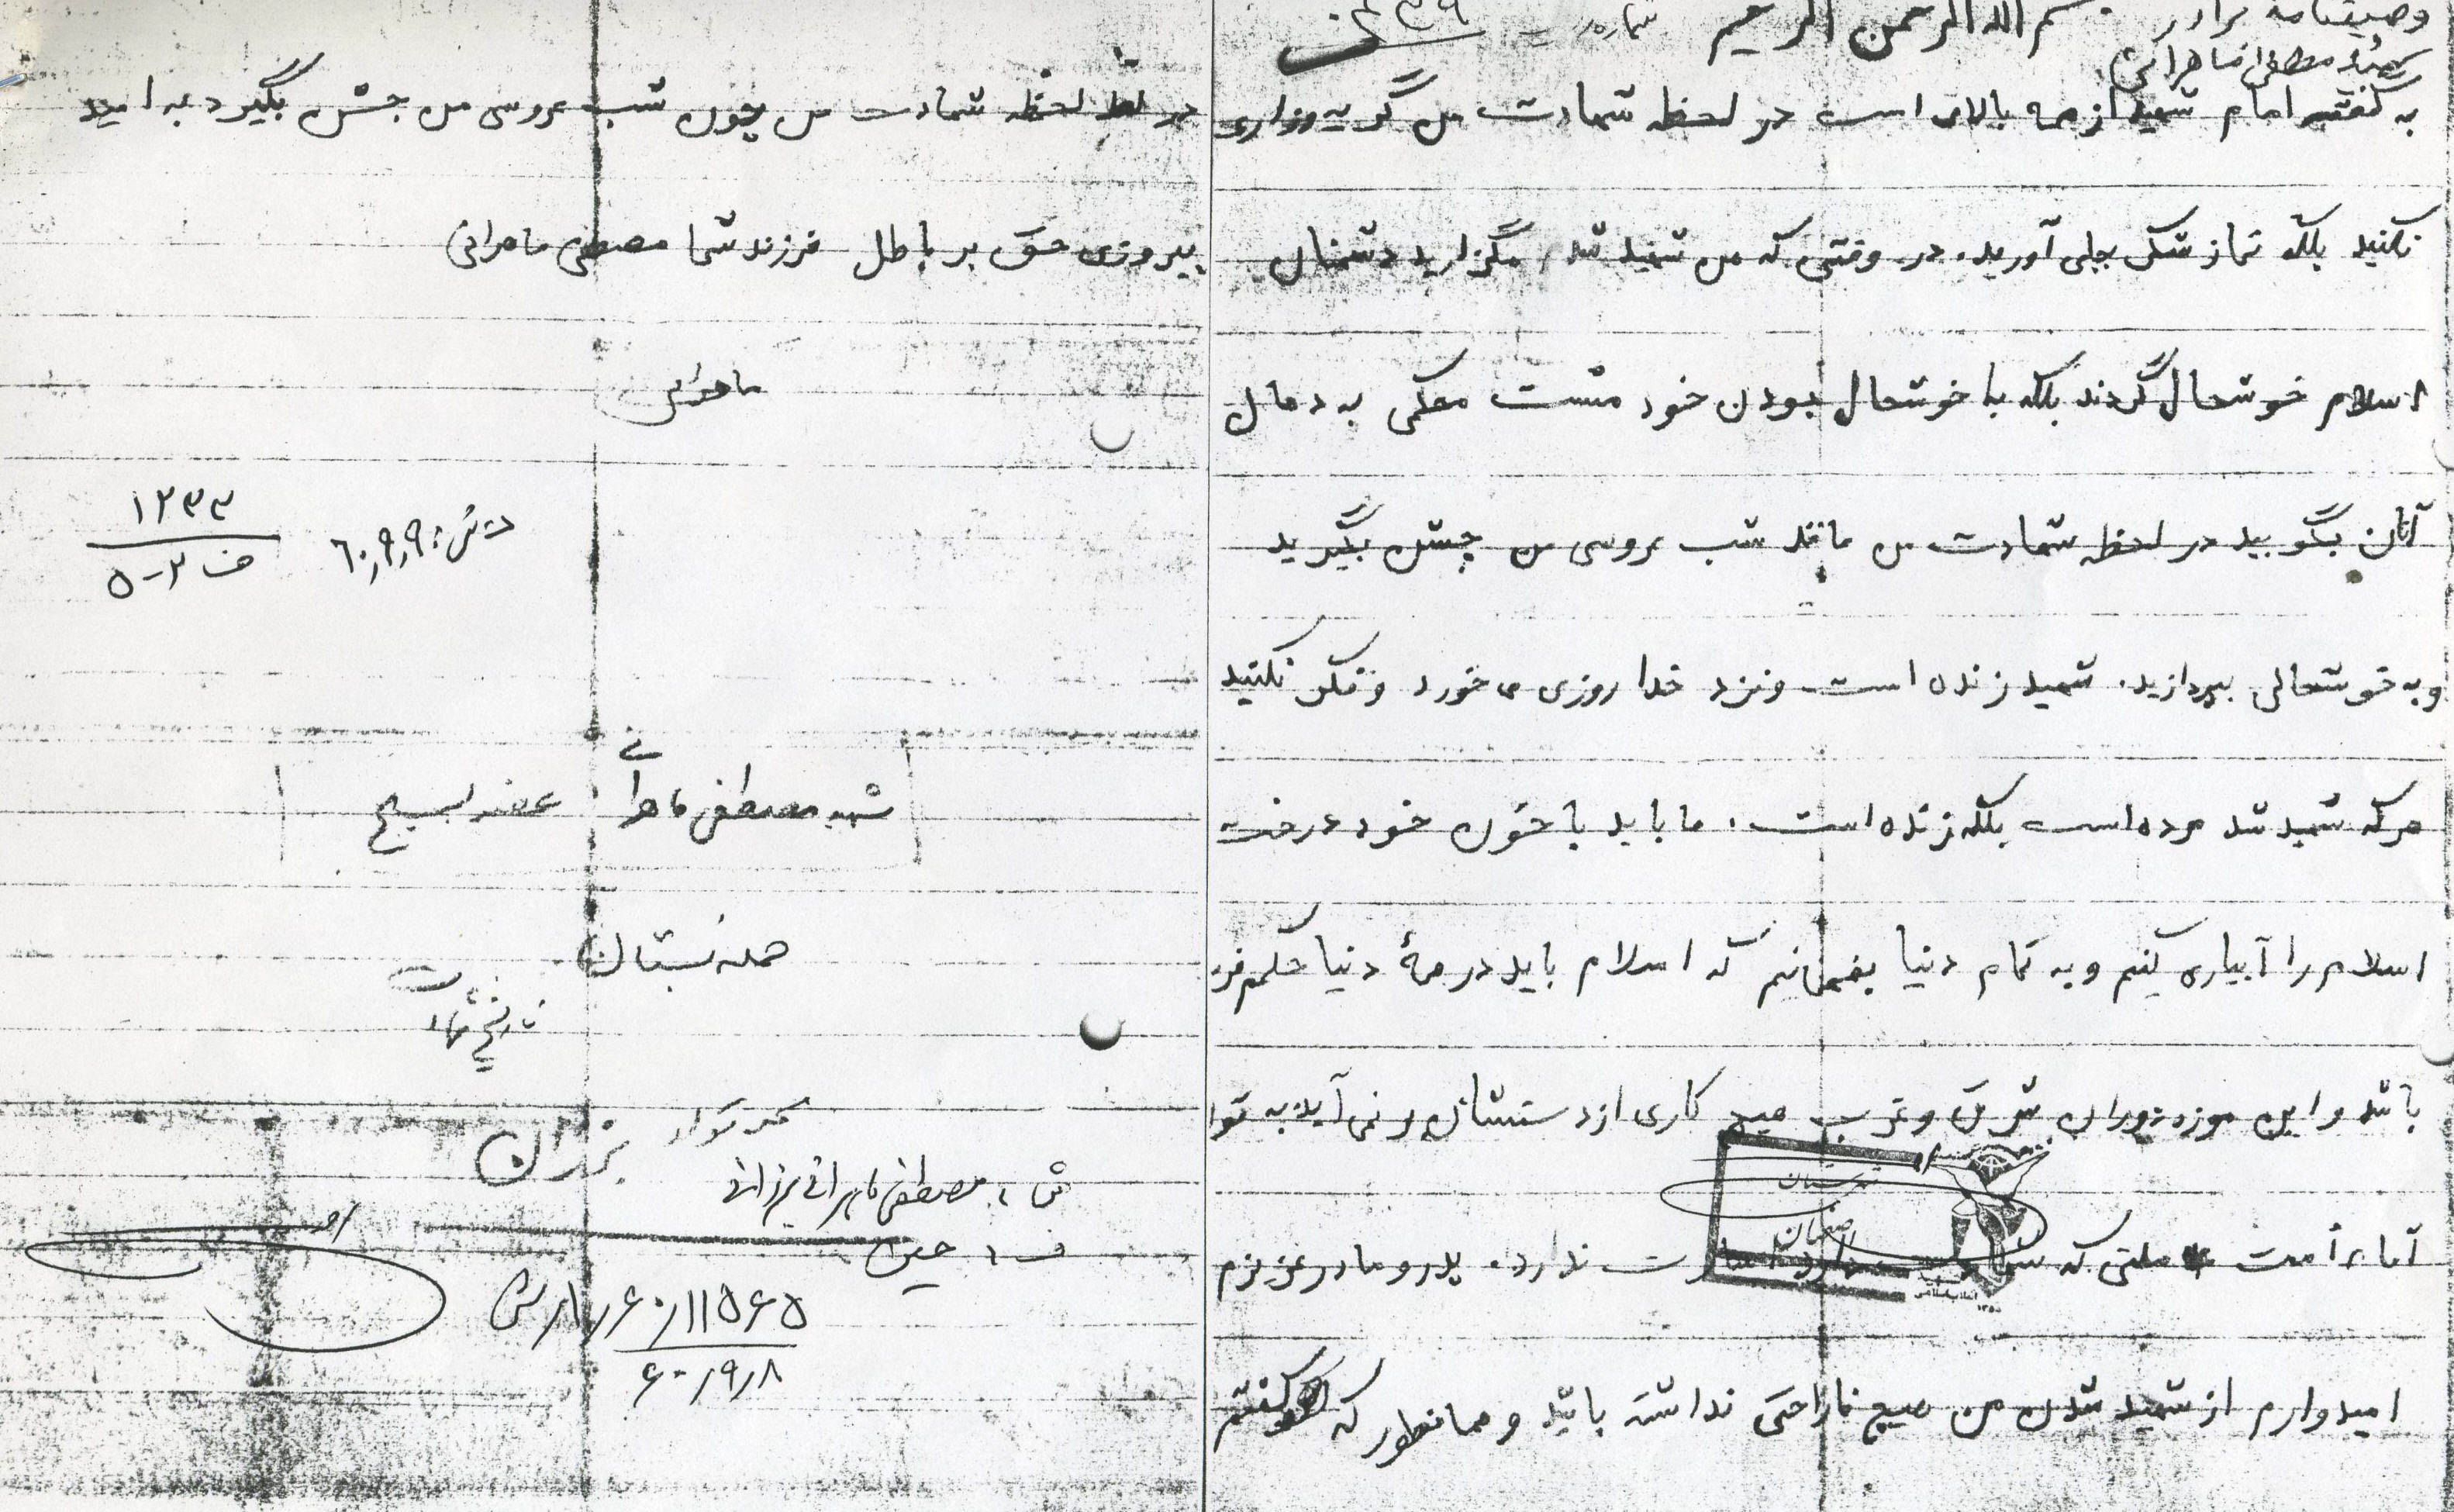 وصیتنامه برادر
بسم الله الرحمن الرحیم
شماره
شهید مصطفی ماهرانی
به گفته امام شهید از همه بالاتر است در لحظه شهادت من گریه وزاری
نکنید بلکه نماز شکر بجای آورید. در وقتی که من شهید شدم مگزارید دشمنان
اسلام خوشحال گردند بلکه با خوشحال بودن خود مشت محکمی به دهان
آنان بگویید در لحظه شهادت من مانند شب عروسی من جشن بگیرید
و به خوشحالی بپردازید. شهید زنده است و نزد خدا روزی می خورد و فکر نکنید
هر که شهید شد مرده است بلکه زنده است. ما باید با خون خود درخت
اسلام را آبیاری کنیم و به تمام دنیا بفهمانیم که اسلام باید در همهٔ دنیا حکم فر
باشد و این موزدوران شرق و غرب هیچ کاری از دستشان بر نمی آید به
ملتی که شهادت دارد اسارت ندارد. پدر و مادر عزیزم
امیدوارم از شهید شدن من هیچ ناراحتی نداشته باشید و همانطور که گفتم
در لحظه شهادت من چون شب عروسی من جشن بگیرد به امید
پیروزی حق بر باطل فرزند شما مصطفی ماهرانی
ماهرانی
۱۲۳۳
ف ۲-۵
ت ش: ۶۰٫۹٫۹
شهید مصطفی ماهرانی عضو بسیج
حمله بستان
تاریخ شهادت
محل تولد برزان
ش: مصطفی ماهرانی برزانی
ف: حسین
۶۰/۱۱۵۶۵
۶۰/۹/۸
اصفهان